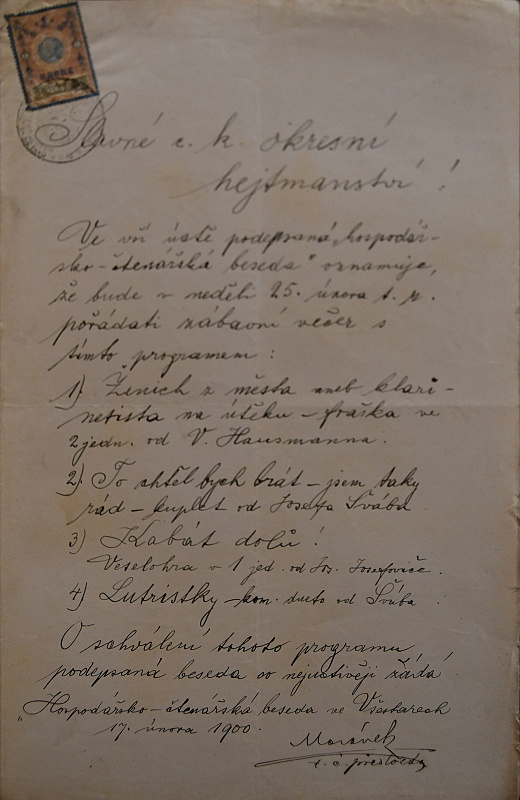 Slavné c. k. okresní
hejtmanství!
Ve vší úctě podepsaná „hospodář-
sko-čtenářská beseda" oznamuje,
že bude v neděli 25. února t. r.
pořádati zábavní večer s
tímto programem:
1) Ženich z města aneb klari-
netista na útěku – fraška ve
2 jedn. od V. Hausmanna.
2) To chtěl bych brát – jsem taky
rád – kuplet od Josefa Švába
3) Kabát dolů!
Veselohra v 1 jed. od Jos. Josefoviče.
4) Lutristky – kom. dueto od Švába.
O schválení tohoto programu
podepsaná beseda co nejuctivěji žádá
„Hospodářsko-čtenářská beseda ve Všestarech
17. února 1900.
Morávek
t. č. předseda